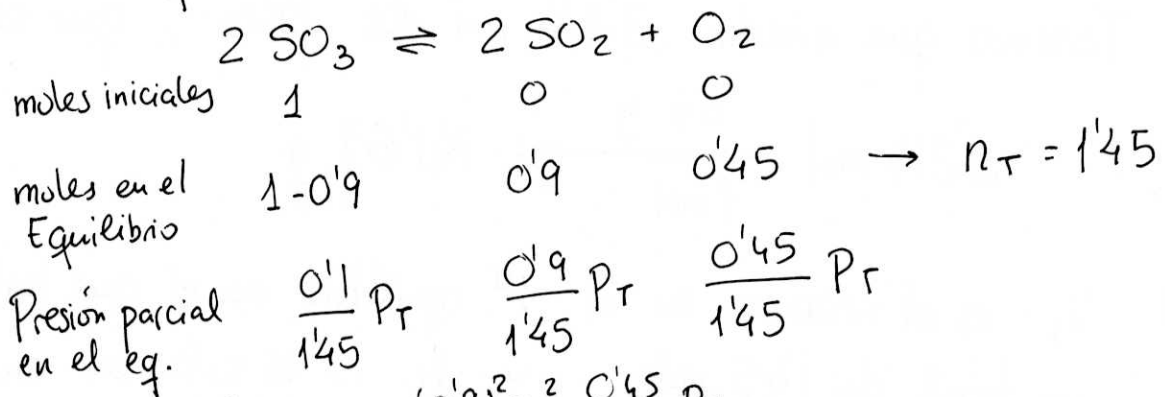 2 SO₃ ⇌ 2 SO₂ + O₂
moles iniciales 1 0 0
moles en el Equilibrio 1-0'9 0'9 0'45 → n_T = 1'45
Presión parcial en el eq. 0'1/1'45 P_T 0'9/1'45 P_T 0'45/1'45 P_T